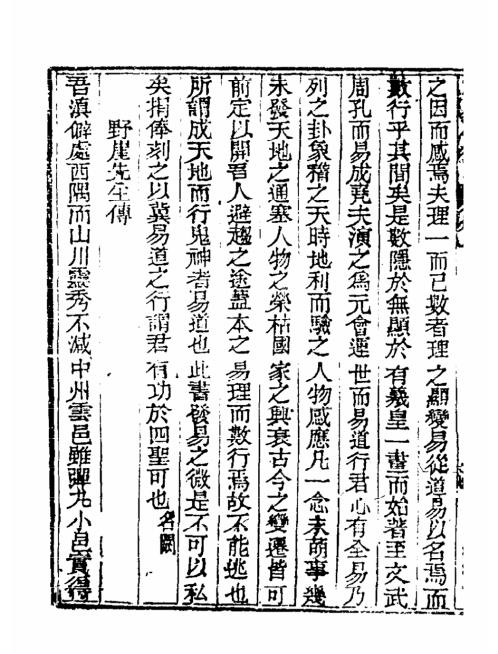 之因而感焉夫理一而已數者理之顯變易從道易以名焉而
數行乎其間矣是數隱於無顯於有羲皇一畫而始著至文武
周孔而易成堯夫演之爲元會運世而易道行君心有全易乃
列之卦象稽之天時地利而驗之人物感應凡一念未萌事幾
未發天地之通塞人物之榮枯國家之興衰古今之變遷皆可
前定以開吾人避趨之途蓋本之易理而數行焉故不能逃也
所謂成天地而行鬼神者易道也此書發易之微是不可以私
矣捐俸刻之以冀易道之行謂君有功於四聖可也 名闕
野崖先生傳
吾滇僻處西隅而山川靈秀不減中州雲邑雖彈丸小邑實得